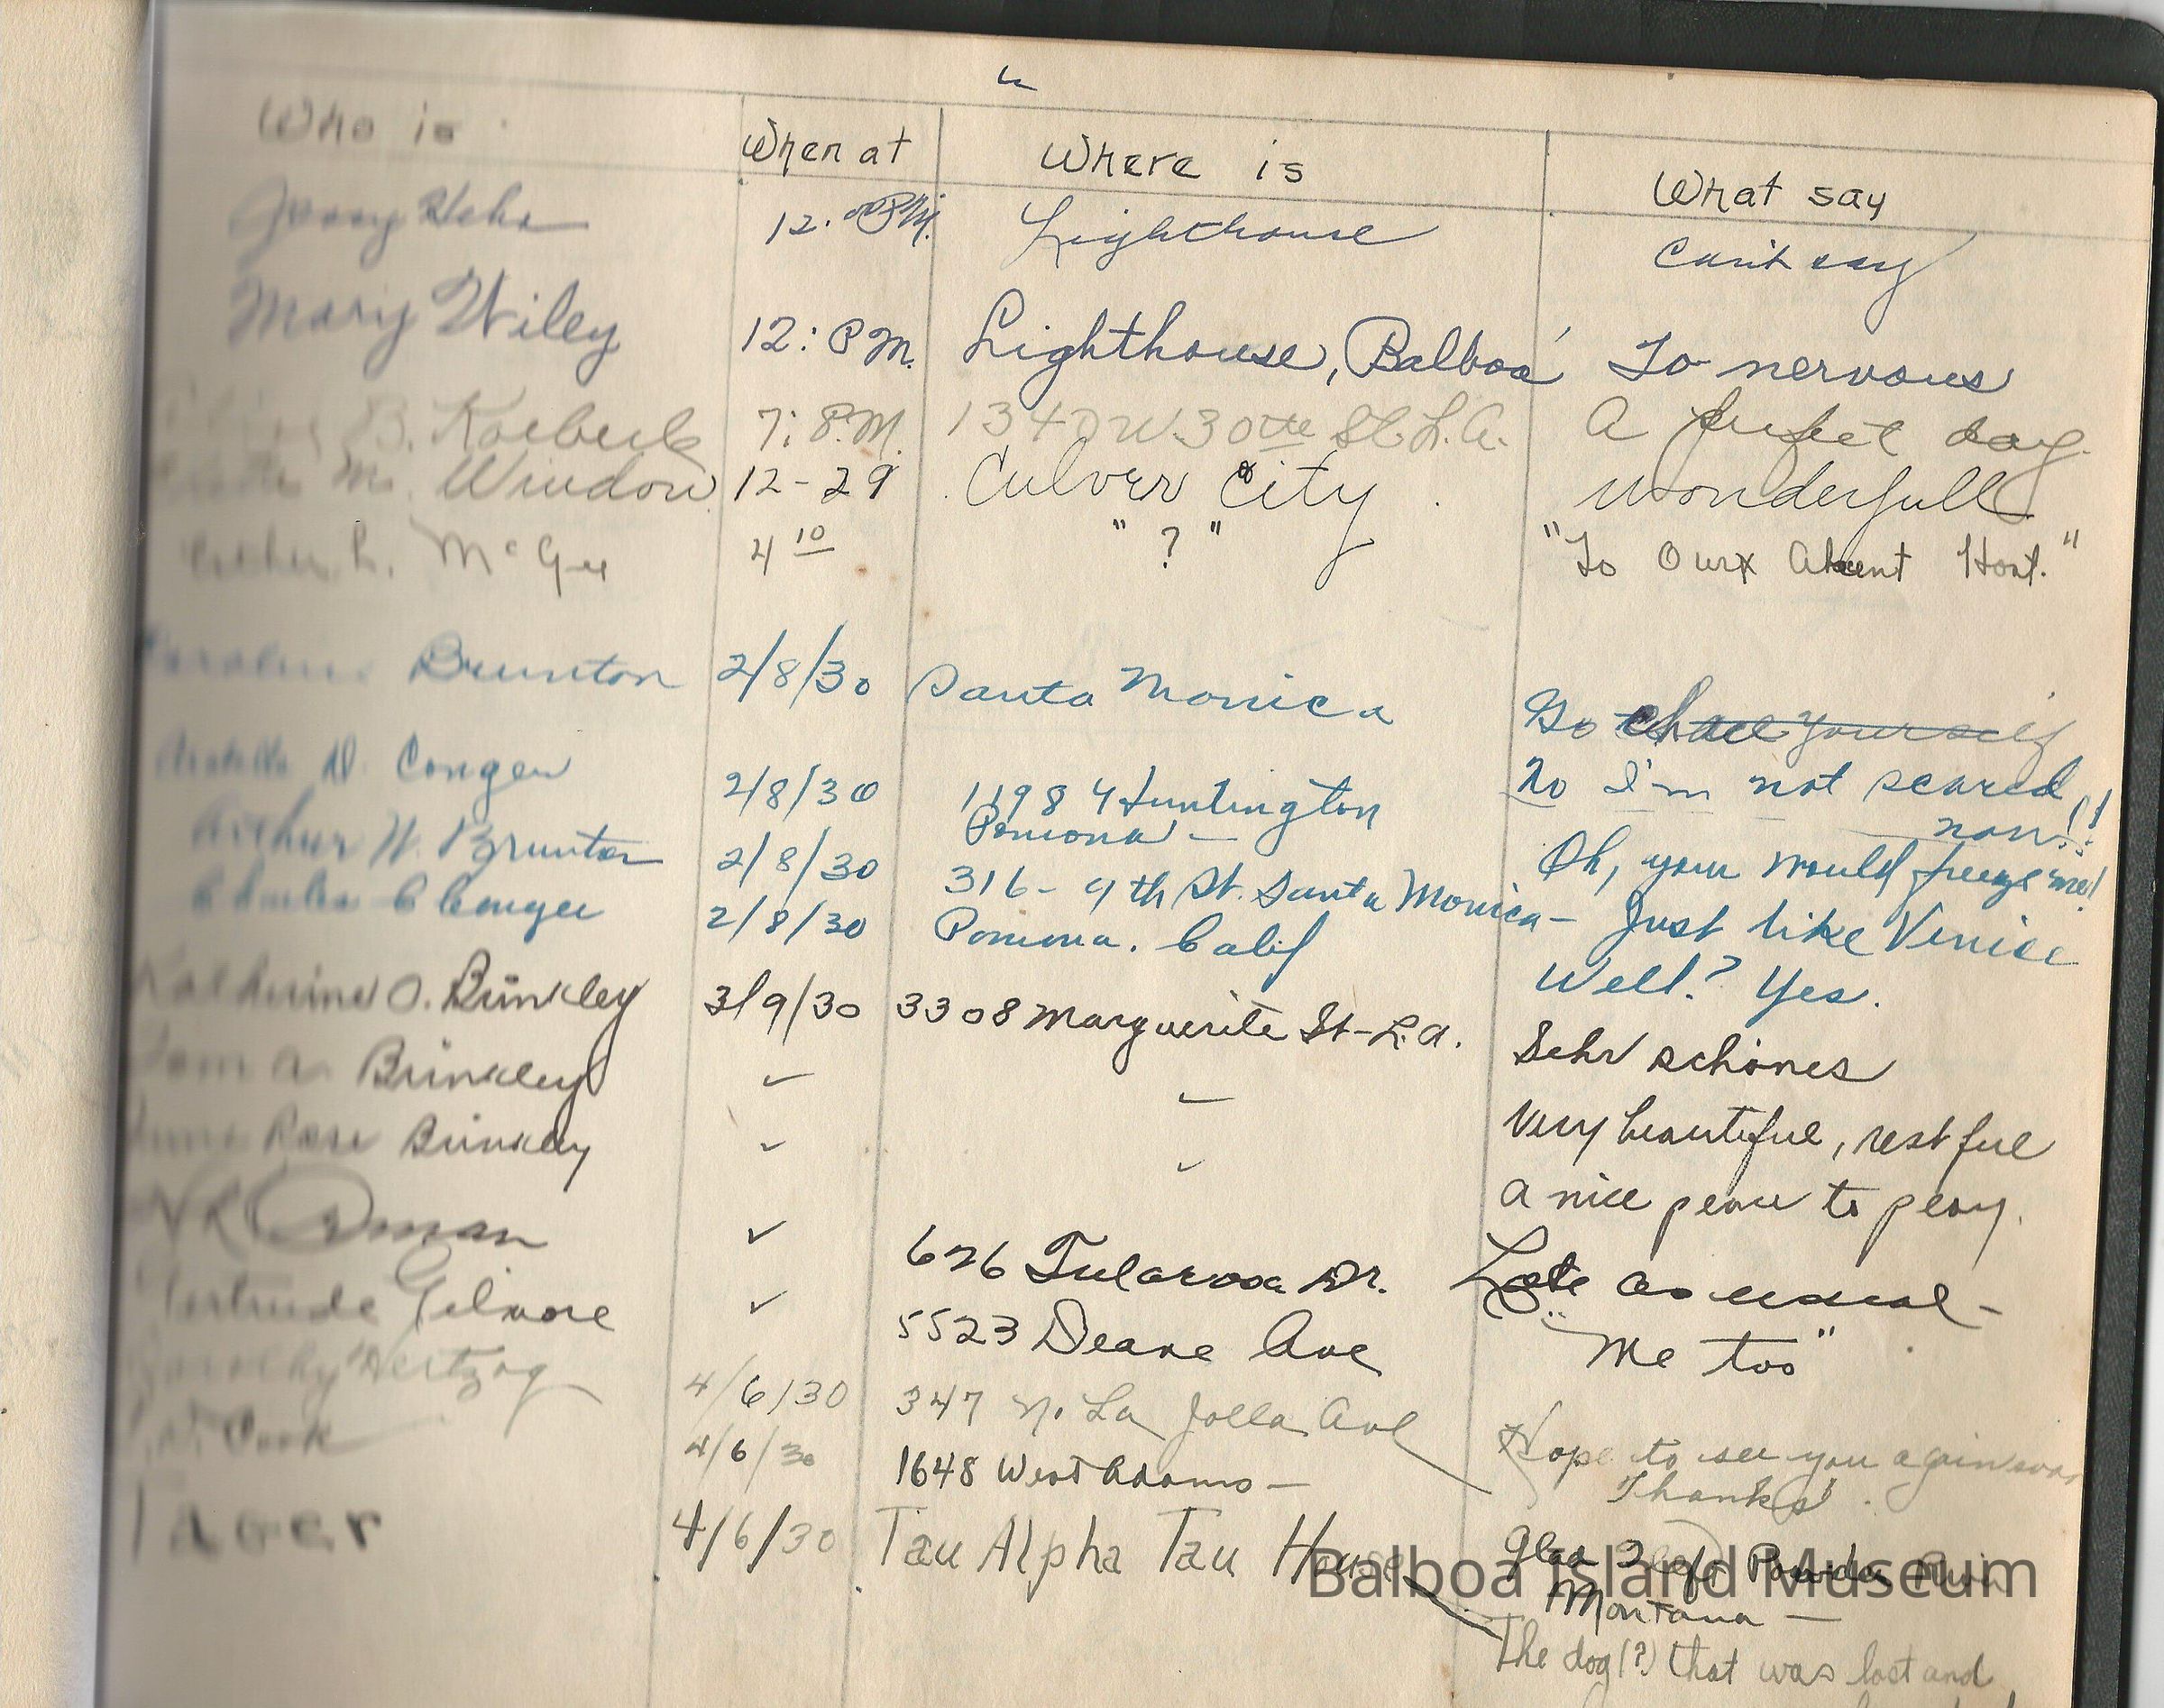 Who is When at Where is What say
12.00 P.M. Lighthouse Can't say
Mary Wiley 12: P M. Lighthouse, Balboa To nervous
B. 7: P.M. 1340 W. 30th St. L.A. A perfect day.
M. Window 12-29 Culver City wonderfull
Esther L. McGee 4 10 " ? " "To Our Absent Host."
Caroline Brunton 2/8/30 Santa Monica Go chase yourself
D. Conger 2/8/30 1198 Huntington No I'm not scared
Pomona - now!!
Arthur W. Brunton 2/8/30 316 - 9th St. Santa Monica - Oh, you would freeze me!
Charles C Conger 2/8/30 Pomona. Calif Just like Venice
Well? Yes.
Katherine O. Brinkley 3/9/30 3308 Marguerite St - L.A. Sehr schönes
Tom A. Brinkley ✓ ✓ Very beautiful, restful
Rose Brinkley ✓ ✓ a nice place to play.
✓ 626 Tularosa Dr. Late as usual -
Gertrude Gilmore ✓ 5523 Deane Ave "Me too"
Dorothy Hertzog 4/6/30 347 N. La Jolla Ave Hope to see you again soon
Thanks.
Cook 4/6/30 1648 West Adams - Glad I left Powder River
Montana -
4/6/30 Tau Alpha Tau House The dog(?) that was lost and
Balboa Island Museum